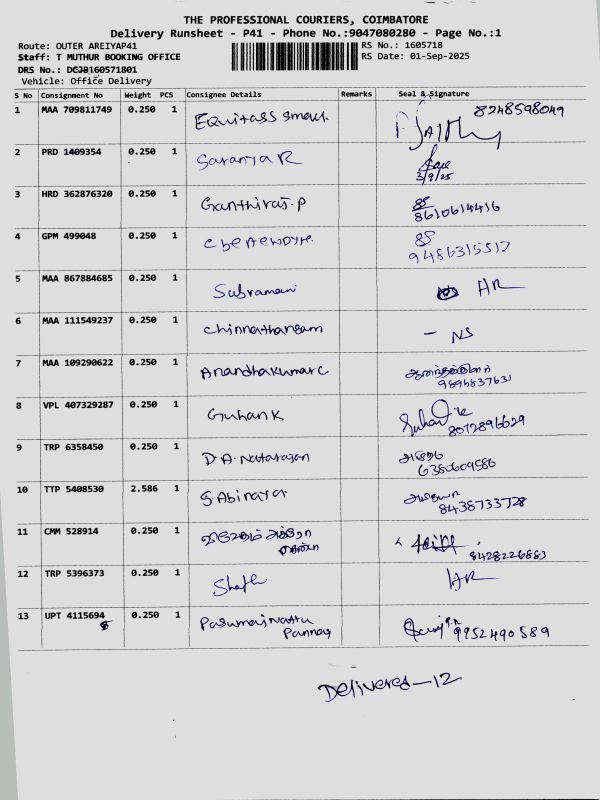 THE PROFESSIONAL COURIERS, COIMBATORE
Delivery Runsheet - P41 - Phone No.:9047080280 - Page No.:1
Route: OUTER AREIYAP41 RS No.: 1605718
Staff: T MUTHUR BOOKING OFFICE RS Date: 01-Sep-2025
DRS No.: DCJB160571801
Vehicle: Office Delivery
S No Consignment No Weight PCS Consignee Details Remarks Seal & Signature
1 MAA 709811749 0.250 1 Equitass small 8248598049
2 PRD 1409354 0.250 1 Saranya R 3/9/25
3 HRD 362876320 0.250 1 Ganthiraj.P 8610614416
4 GPM 499048 0.250 1 9486315517
5 MAA 867884685 0.250 1 Subramani HR
6 MAA 111549237 0.250 1 Chinnathangam - NS
7 MAA 109290622 0.250 1 Anandhakumar C
8 VPL 407329287 0.250 1 Guhan K 8072896629
9 TRP 6358450 0.250 1 D.A. Natarajan 6380609586
10 TTP 5408530 2.586 1 S Abinaya 8438733728
11 CMM 528914 0.250 1 8428226883
12 TRP 5396373 0.250 1 HR
13 UPT 4115694 0.250 1 Pasumai Nattu 9952490589
Pannay
Delivered - 12